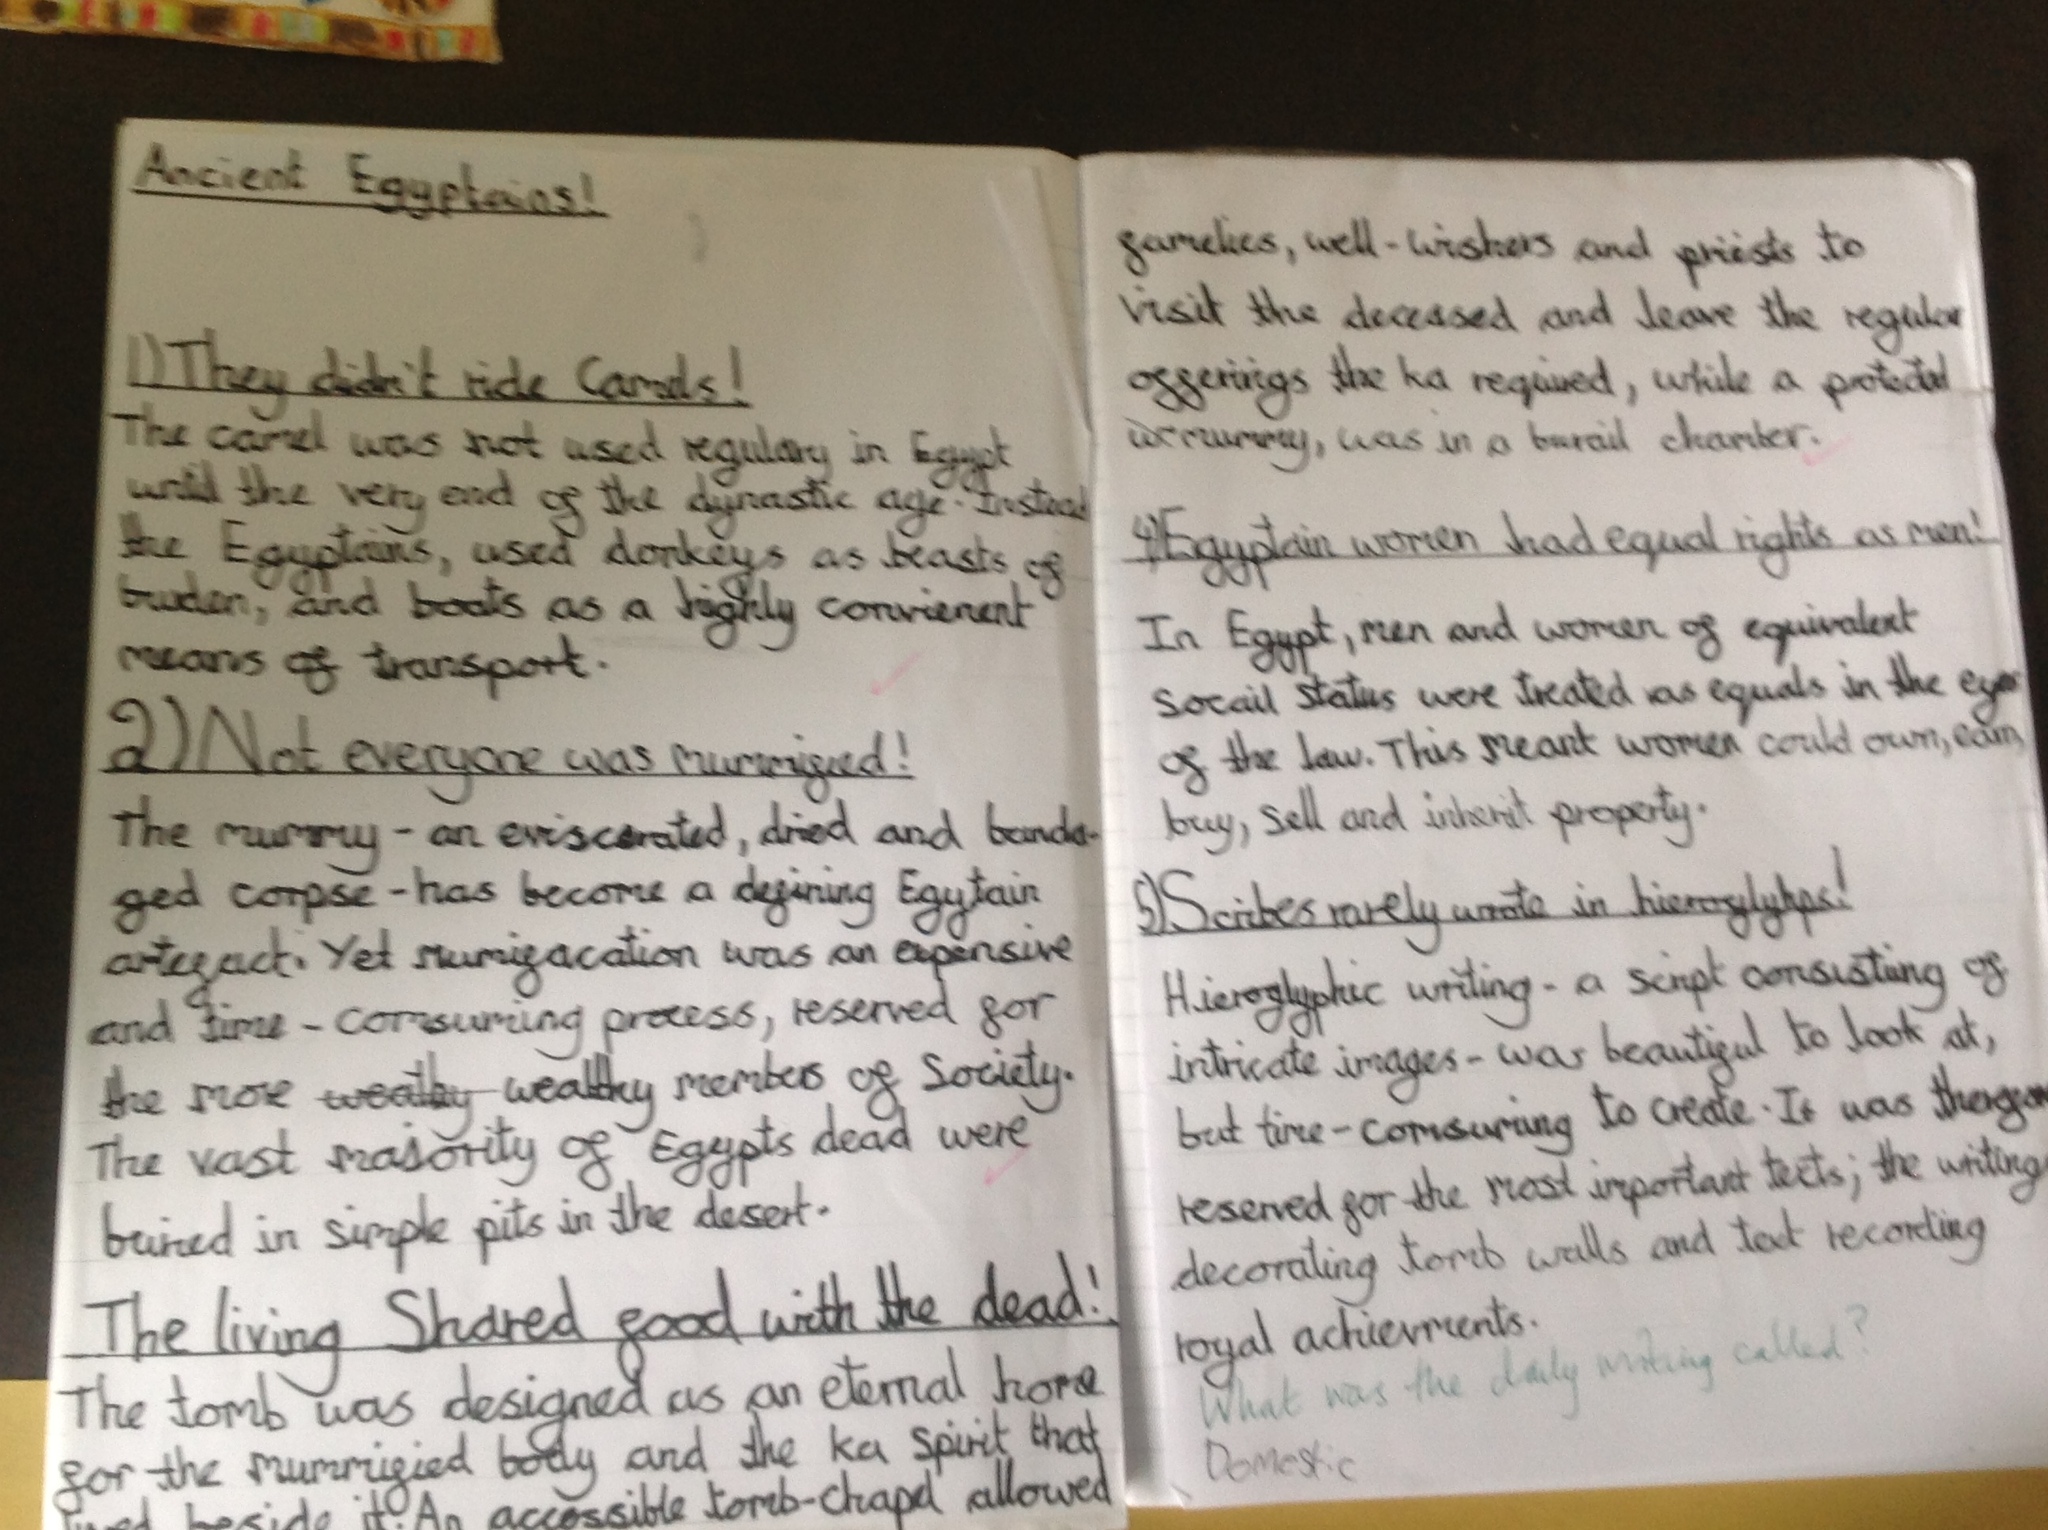 Ancient Egyptains!
1) They didn't ride Camels!
The camel was not used regulary in Egypt
until the very end of the dynastic age. Instead
the Egyptains, used donkeys as beasts of
burden, and boats as a highly convienent
means of transport.
2) Not everyone was mummified!
The mummy - an eviscerated, dried and banda-
ged corpse - has become a defining Egytain
artefact. Yet mumifacation was an expensive
and time - comsuming process, reserved for
the more wealthy wealthy members of Society.
The vast majority of Egypts dead were
buried in simple pits in the desert.
The living Shared food with the dead!
The tomb was designed as an eternal home
for the mummified body and the ka spirit that
lived beside it. An accessible tomb-chapel allowed
famelies, well-wishers and priests to
visit the deceased and leave the regular
offerings the ka required, while a protected
mummy, was in a burail chamber.
4) Egyptain women had equal rights as men!
In Egypt, men and women of equivalent
socail status were treated as equals in the eyes
of the law. This meant women could own, earn,
buy, sell and inherit property.
5) Scribes rarely wrote in hieroglyhps!
Hieroglyphic writing - a script consisting of
intricate images - was beautiful to look at,
but time - comsuming to create. It was therefore
reserved for the most important texts; the writing
decorating tomb walls and text recording
royal achievments.
What was the daily writing called?
Domestic